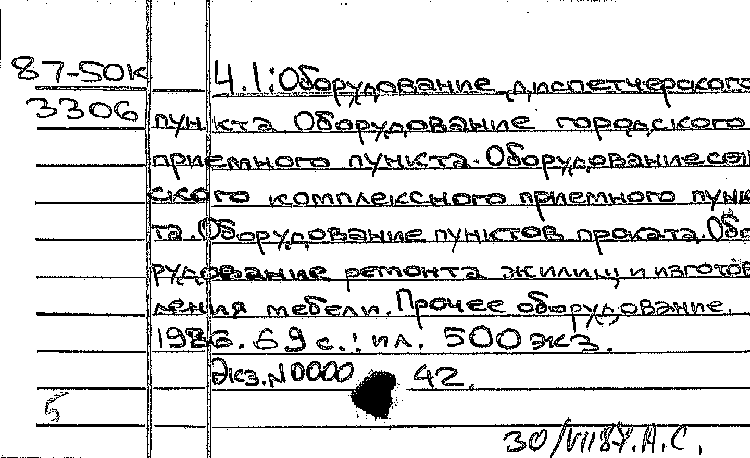 87-50к
3306
Ч.1: Оборудование диспетчерского
пункта Оборудование городского
приемного пункта. Оборудование сель
ского комплексного приемного пунк
та. Оборудование пунктов проката. Обо
рудование ремонта жилищ и изготов
ления мебели. Прочее оборудование.
1986. 69 с.: ил. 500 экз.
Экз. N0000 42.
5
30/VII87. А.С.